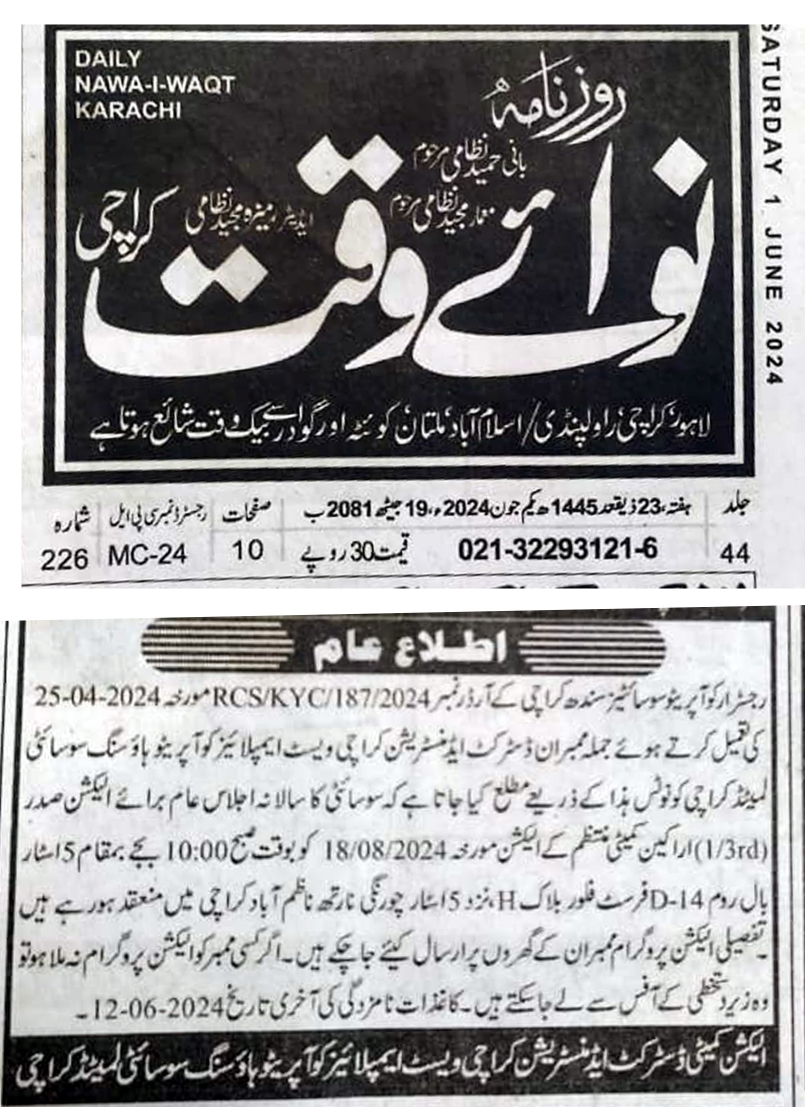 DAILY
NAWA-I-WAQT
KARACHI
روزنامہ
بانی حمید نظامی مرحوم
معمار مجید نظامی مرحوم
ایڈیٹر رمیزہ مجید نظامی
نوائے وقت
کراچی
لاہور، کراچی، راولپنڈی/اسلام آباد، ملتان، کوئٹہ اور گوادر سے بیک وقت شائع ہوتا ہے
SATURDAY 1 JUNE 2024
جلد
44
ہفتہ، 23 ذیقعد 1445ھ یکم جون 2024ء، 19 جیٹھ 2081 ب
021-32293121-6
قیمت 30 روپے
صفحات
10
رجسٹرڈ نمبر سی پی ایل
MC-24
شمارہ
226
اطلاع عام
رجسٹرار کوآپریٹو سوسائٹیز سندھ کراچی کے آرڈر نمبر RCS/KYC/187/2024 مورخہ 25-04-2024
کی تعمیل کرتے ہوئے جملہ ممبران ڈسٹرکٹ ایڈمنسٹریشن کراچی ویسٹ ایمپلائیز کوآپریٹو ہاؤسنگ سوسائٹی
لمیٹڈ کراچی کو نوٹس ہذا کے ذریعے مطلع کیا جاتا ہے کہ سوسائٹی کا سالانہ اجلاس عام برائے الیکشن صدر
(1/3rd) اراکین کمیٹی منتظم کے الیکشن مورخہ 18/08/2024 کو بوقت صبح 10:00 بجے بمقام 5 اسٹار
بال روم D-14 فرسٹ فلور بلاک H، نزد 5 اسٹار چورنگی نارتھ ناظم آباد کراچی میں منعقد ہو رہے ہیں
۔ تفصیلی الیکشن پروگرام ممبران کے گھروں پر ارسال کیئے جا چکے ہیں۔ اگر کسی ممبر کو الیکشن پروگرام نہ ملا ہو تو
وہ زیر دستخطی کے آفس سے لے جاسکتے ہیں۔ کاغذات نامزدگی کی آخری تاریخ 12-06-2024۔
الیکشن کمیٹی ڈسٹرکٹ ایڈمنسٹریشن کراچی ویسٹ ایمپلائیز کوآپریٹو ہاؤسنگ سوسائٹی لمیٹڈ کراچی